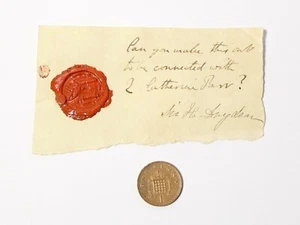 Can you make this out
to be connected with
Q Catherine Parr?
Sir H. Dryden